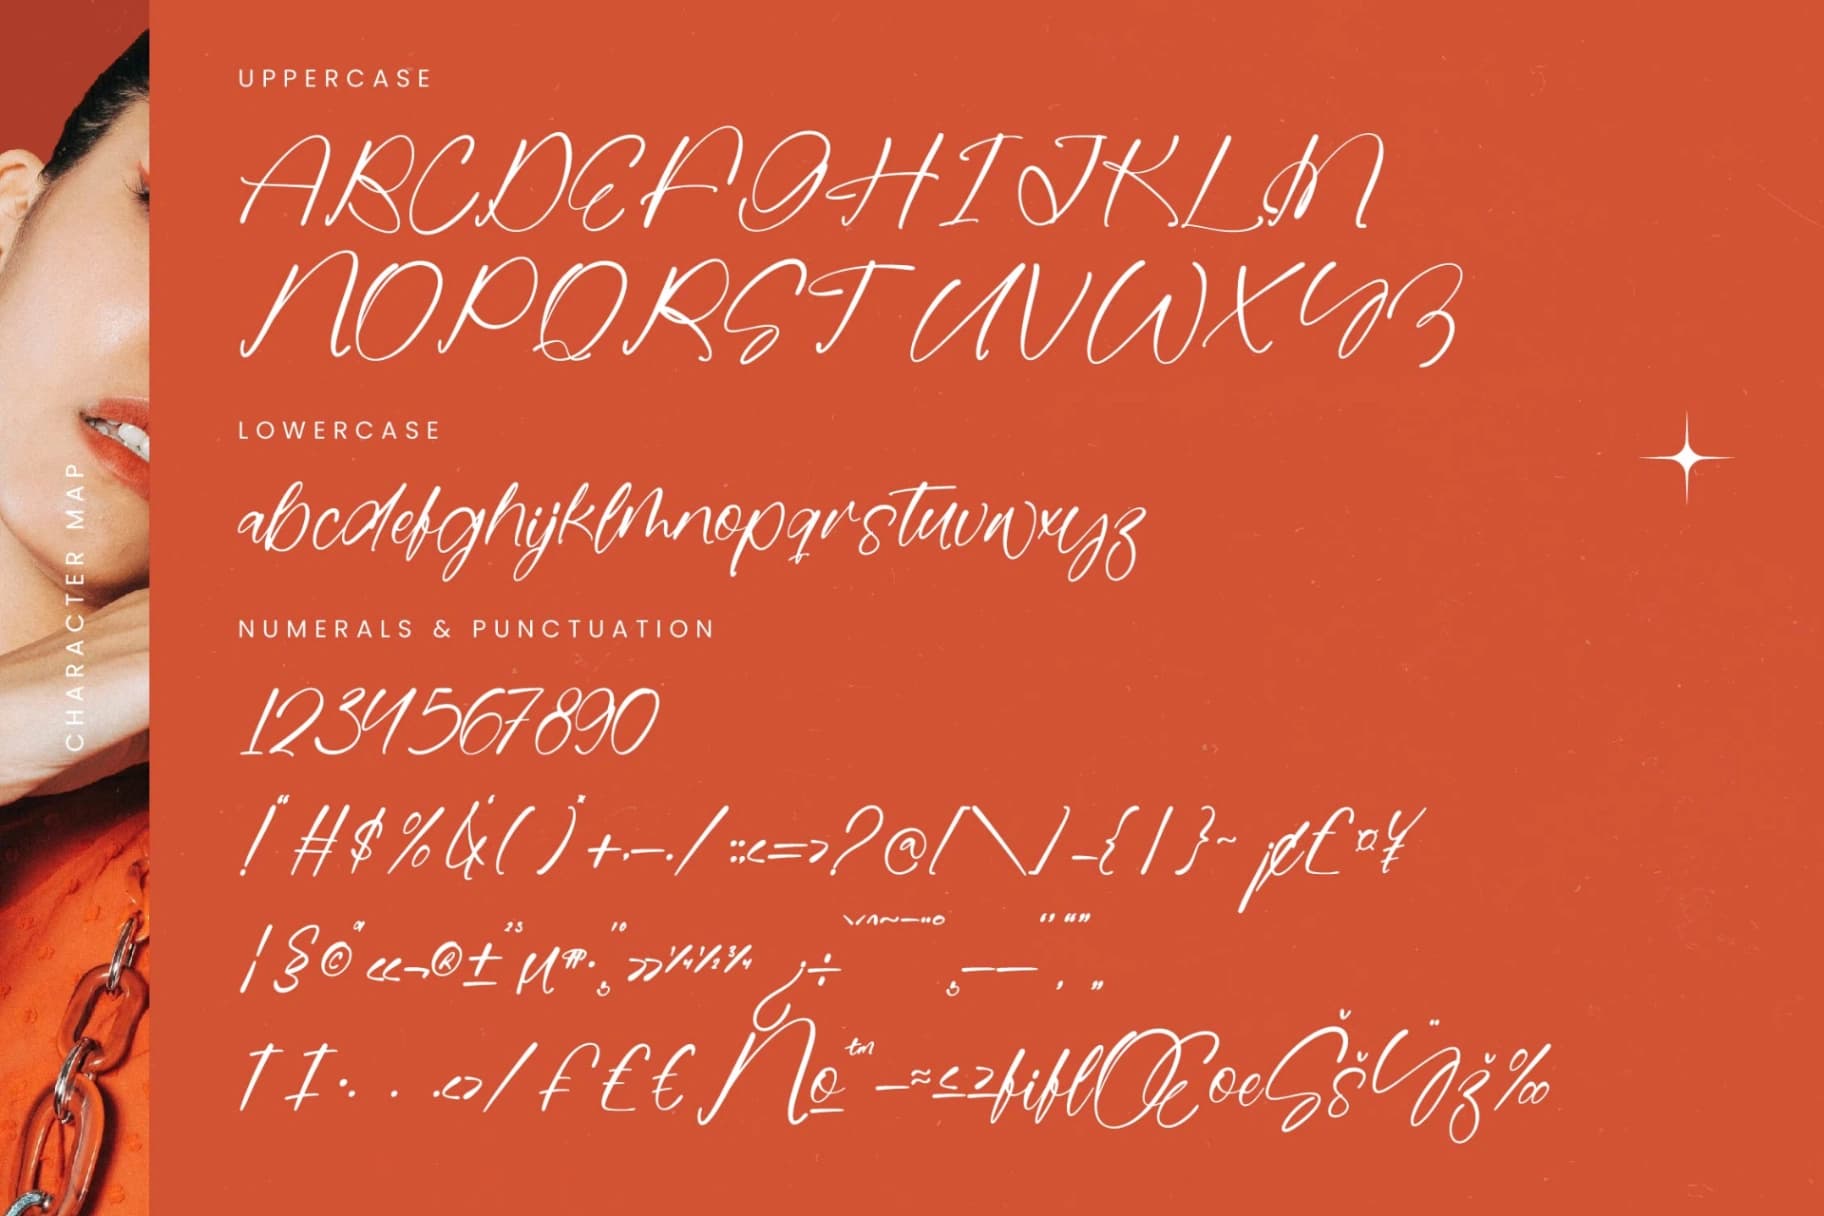 UPPERCASE
ABCDEFGHIJKLM
NOPQRSTUVWXYZ
LOWERCASE
abcdefghijklmnopqrstuvwxyz
NUMERALS & PUNCTUATION
1234567890
!"#$%&'()*+,-./:;<=>?@[\]_{|}~¡¢£¤¥
¦§©ª«¬®±²³µ¶·¸¹º»¼½¾¿÷ˋˊˆ˜¯¨˚¸–—‘’‚“”„
†‡•..‹›⁄ƒ₤€№™−≈≤≥fiflŒœŠšŸž‰
CHARACTER MAP